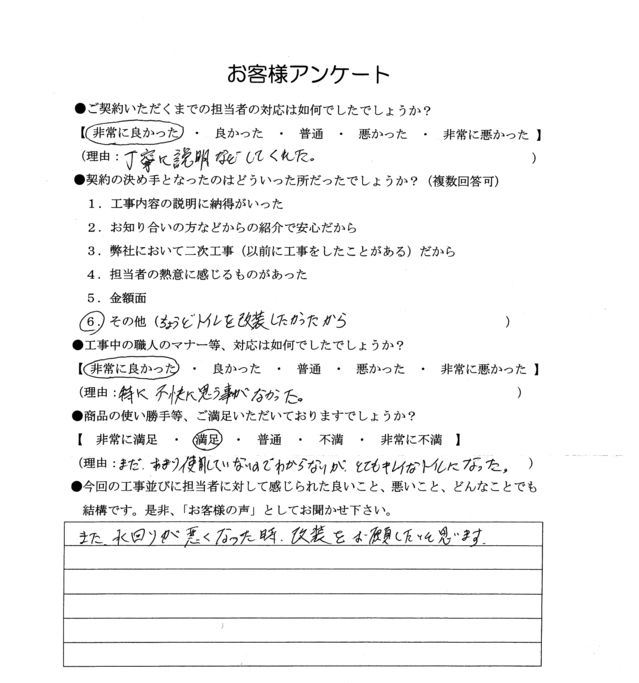 お客様アンケート
●ご契約いただくまでの担当者の対応は如何でしたでしょうか？
【 非常に良かった ・ 良かった ・ 普通 ・ 悪かった ・ 非常に悪かった 】
（理由：丁寧に説明などしてくれた。）
●契約の決め手となったのはどういった所だったでしょうか？（複数回答可）
１．工事内容の説明に納得がいった
２．お知り合いの方などからの紹介で安心だから
３．弊社において二次工事（以前に工事をしたことがある）だから
４．担当者の熱意に感じるものがあった
５．金額面
６．その他（ちょうどトイレを改装したかったから）
●工事中の職人のマナー等、対応は如何でしたでしょうか？
【 非常に良かった ・ 良かった ・ 普通 ・ 悪かった ・ 非常に悪かった 】
（理由：特に不快に思う事がなかった。）
●商品の使い勝手等、ご満足いただいておりますでしょうか？
【 非常に満足 ・ 満足 ・ 普通 ・ 不満 ・ 非常に不満 】
（理由：まだ、あまり使用していないのでわからないが、とてもキレイなトイレになった。）
●今回の工事並びに担当者に対して感じられた良いこと、悪いこと、どんなことでも
結構です。是非、「お客様の声」としてお聞かせ下さい。
また、水回りが悪くなった時、改装をお願いしたいと思います。